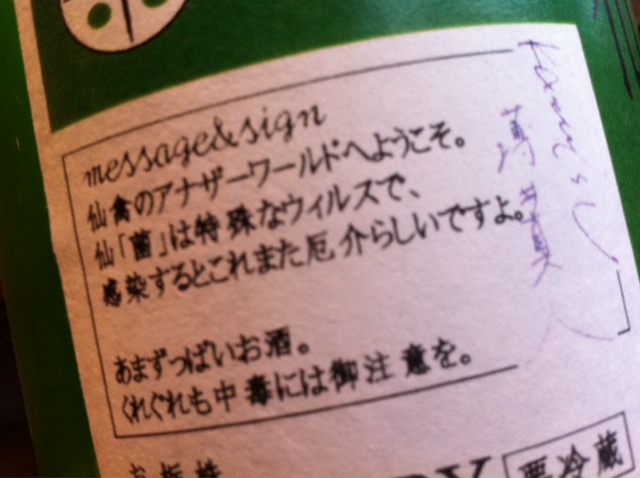 message&sign
仙禽のアナザーワールドへようこそ。
仙「菌」は特殊なウィルスで、
感染するとこれまた厄介らしいですよ。
あまずっぱいお酒。
くれぐれも中毒には御注意を。
要冷蔵